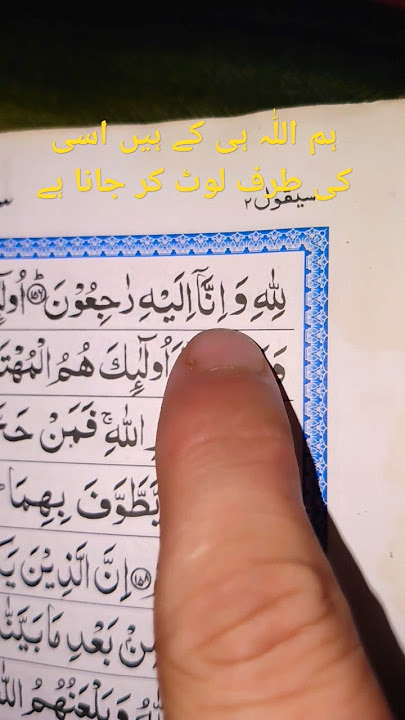 ہم اللہ ہی کے ہیں اسی
کی طرف لوٹ کر جانا ہے
سیقول ۲
لِلّٰهِ وَ اِنَّاۤ اِلَیْهِ رٰجِعُوْنَ ﴿۱۵۶﴾ؕ
اُولٰٓىِٕكَ هُمُ
اللّٰهِ ۚ فَمَنْ
یَّطَّوَّفَ بِهِمَا
﴿۱۵۸﴾ اِنَّ الَّذِیْنَ
مِنْۢ بَعْدِ مَا
وَ یَلْعَنُهُمُ